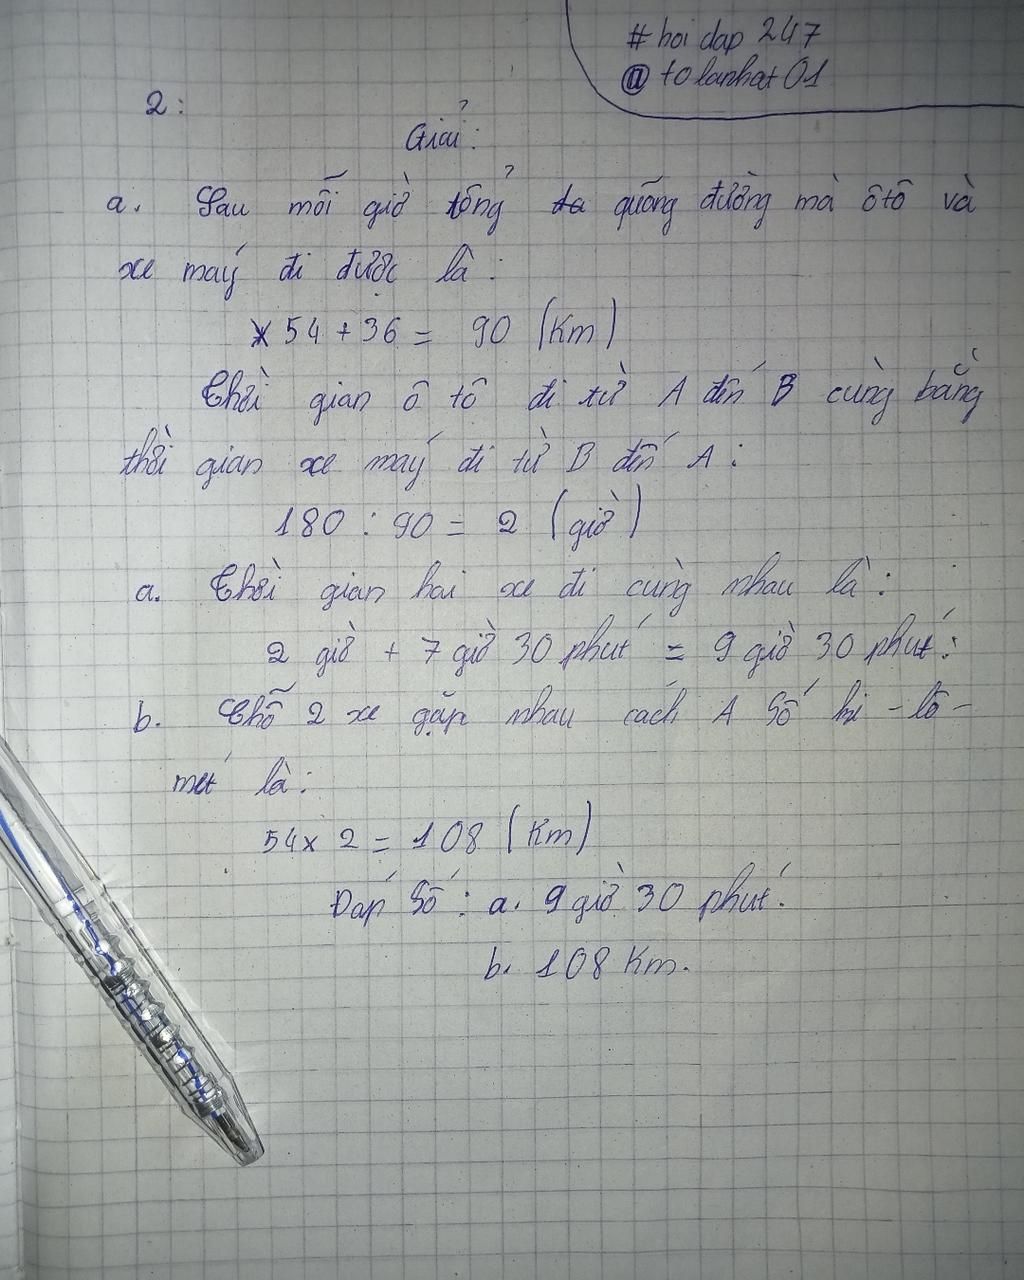 # hoi dap 247
@ tolanhat01
2:
Giải:
a. Sau mỗi giờ tổng quãng đường mà ôtô và
xe máy đi được là:
54 + 36 = 90 (Km)
Thời gian ô tô đi từ A đến B cùng bằng
thời gian xe máy đi từ B đến A:
180 : 90 = 2 (giờ)
a. Thời gian hai xe đi cùng nhau là:
2 giờ + 7 giờ 30 phút = 9 giờ 30 phút.
b. Chỗ 2 xe gặp nhau cách A số ki-lô-
mét là:
54 x 2 = 108 (Km)
Đáp số: a. 9 giờ 30 phút.
b. 108 Km.